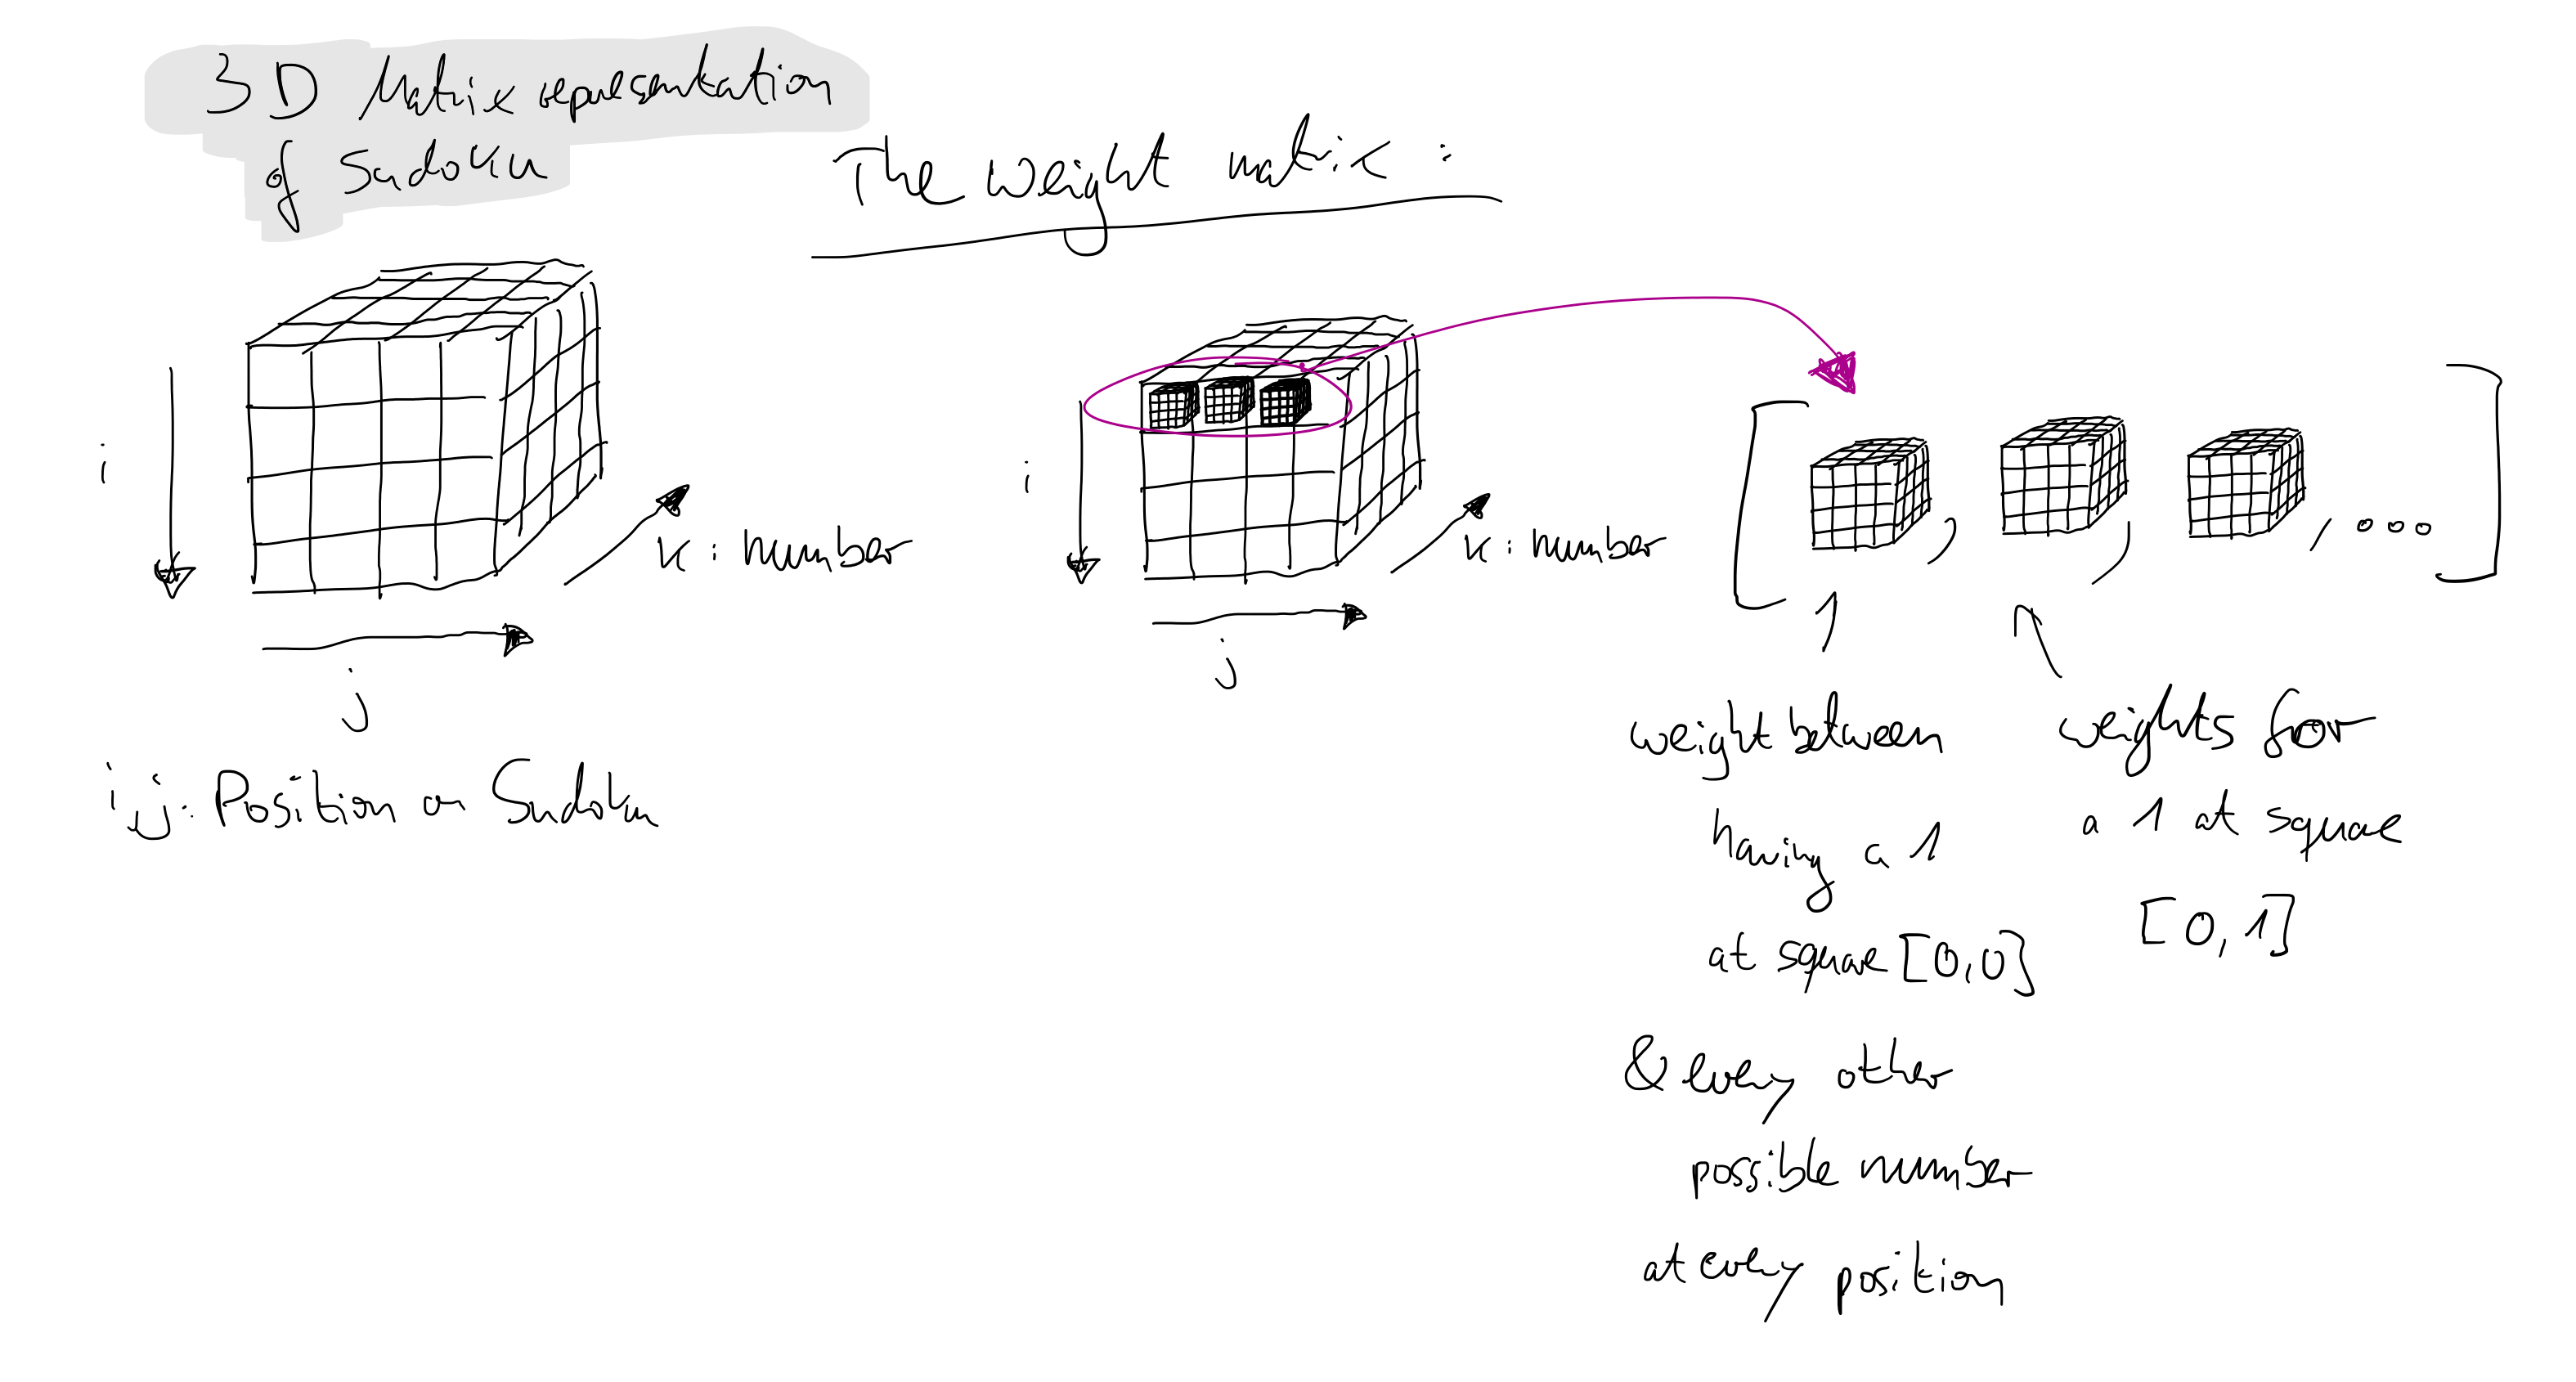 3D Matrix representation
of Sudoku
The weight matrix:
i
k: number
j
i,j: Position on Sudoku
i
k: number
j
[ , , , ... ]
weight between
having a 1
at square [0,0]
& every other
possible number
at every position
weights for
a 1 at square
[0,1]